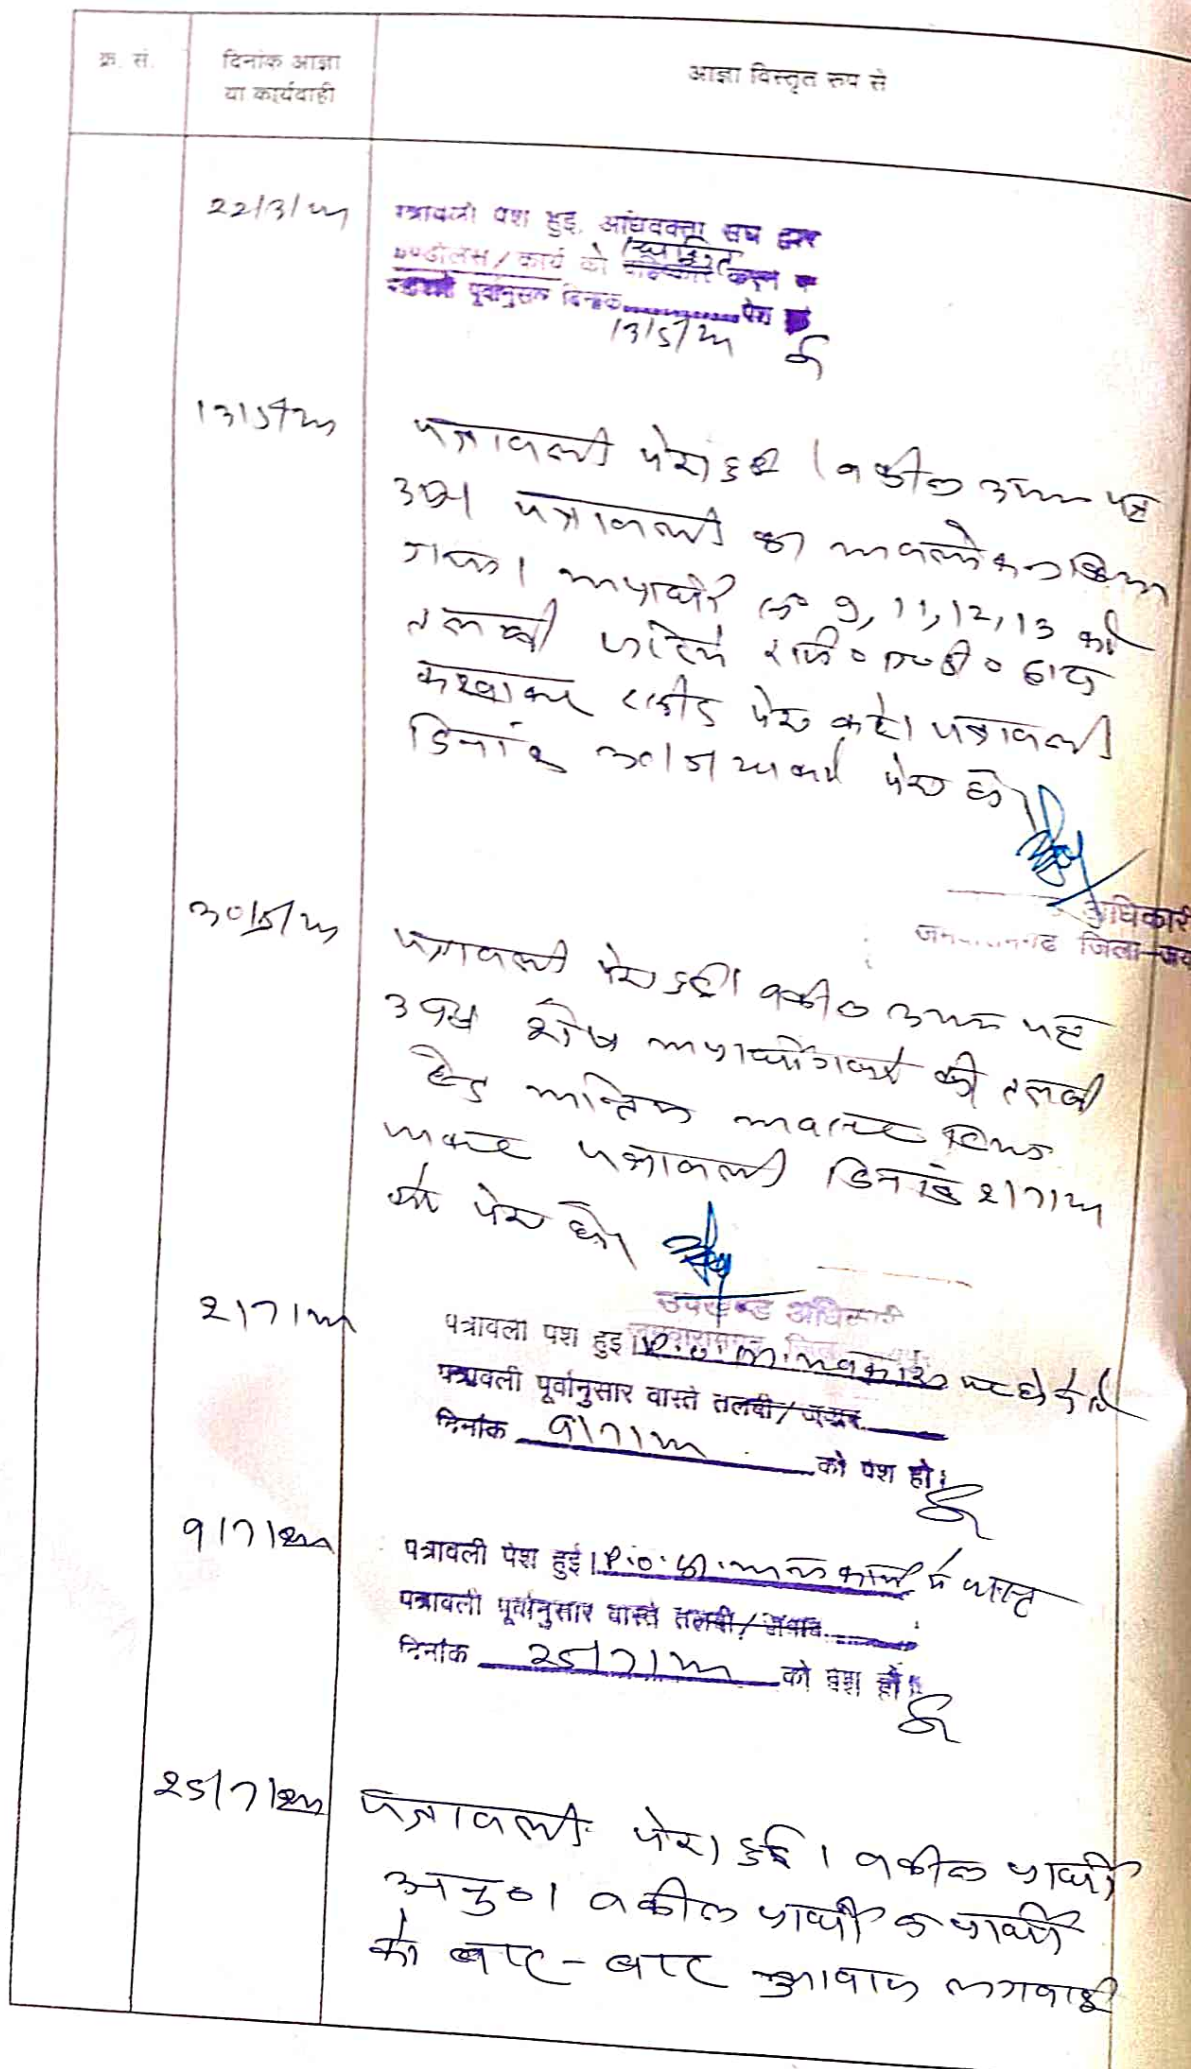 क्र. सं.
दिनांक आज्ञा
या कार्यवाही
आज्ञा विस्तृत रुप से
22/3/24
पत्रावली पेश हुई, अधिवक्ता संघ द्वारा
कण्डोलेंस/कार्य को स्थगित करने
पूर्वानुसार दिनांक पेश हो
13/5/24
13/5/24
पत्रावली पेश हुई। वकील उभय पक्ष
उप। पत्रावली का अवलोकन किया
गया। अप्रार्थी क्र० 9, 11, 12, 13 की
तलबी जरिये रजि० ए०डी० डाक
करवाकर रसीद पेश करे। पत्रावली
दिनांक 30/5/24 को पेश हो।
अधिकारी
जिला-जय
30/5/24
पत्रावली पेश हुई। वकील उभय पक्ष
उप। शेष अप्रार्थीगण की तलबी
हेतु अन्तिम अवसर दिया
जाकर पत्रावली दिनांक 2/7/24
को पेश हो।
उपखण्ड अधिकारी
2/7/24
पत्रावली पेश हुई। P.O. अवकाश पर होने से
पत्रावली पूर्वानुसार वास्ते तलबी/जवाब
दिनांक 9/7/24 को पेश हो।
9/7/24
पत्रावली पेश हुई। P.O. कार्य में व्यस्त
पत्रावली पूर्वानुसार वास्ते तलबी/जवाब
दिनांक 25/7/24 को पेश हो।
25/7/24
पत्रावली पेश हुई। वकील प्रार्थी
अनु०। वकील प्रार्थी व प्रार्थी
को बार-बार आवाज लगवाई